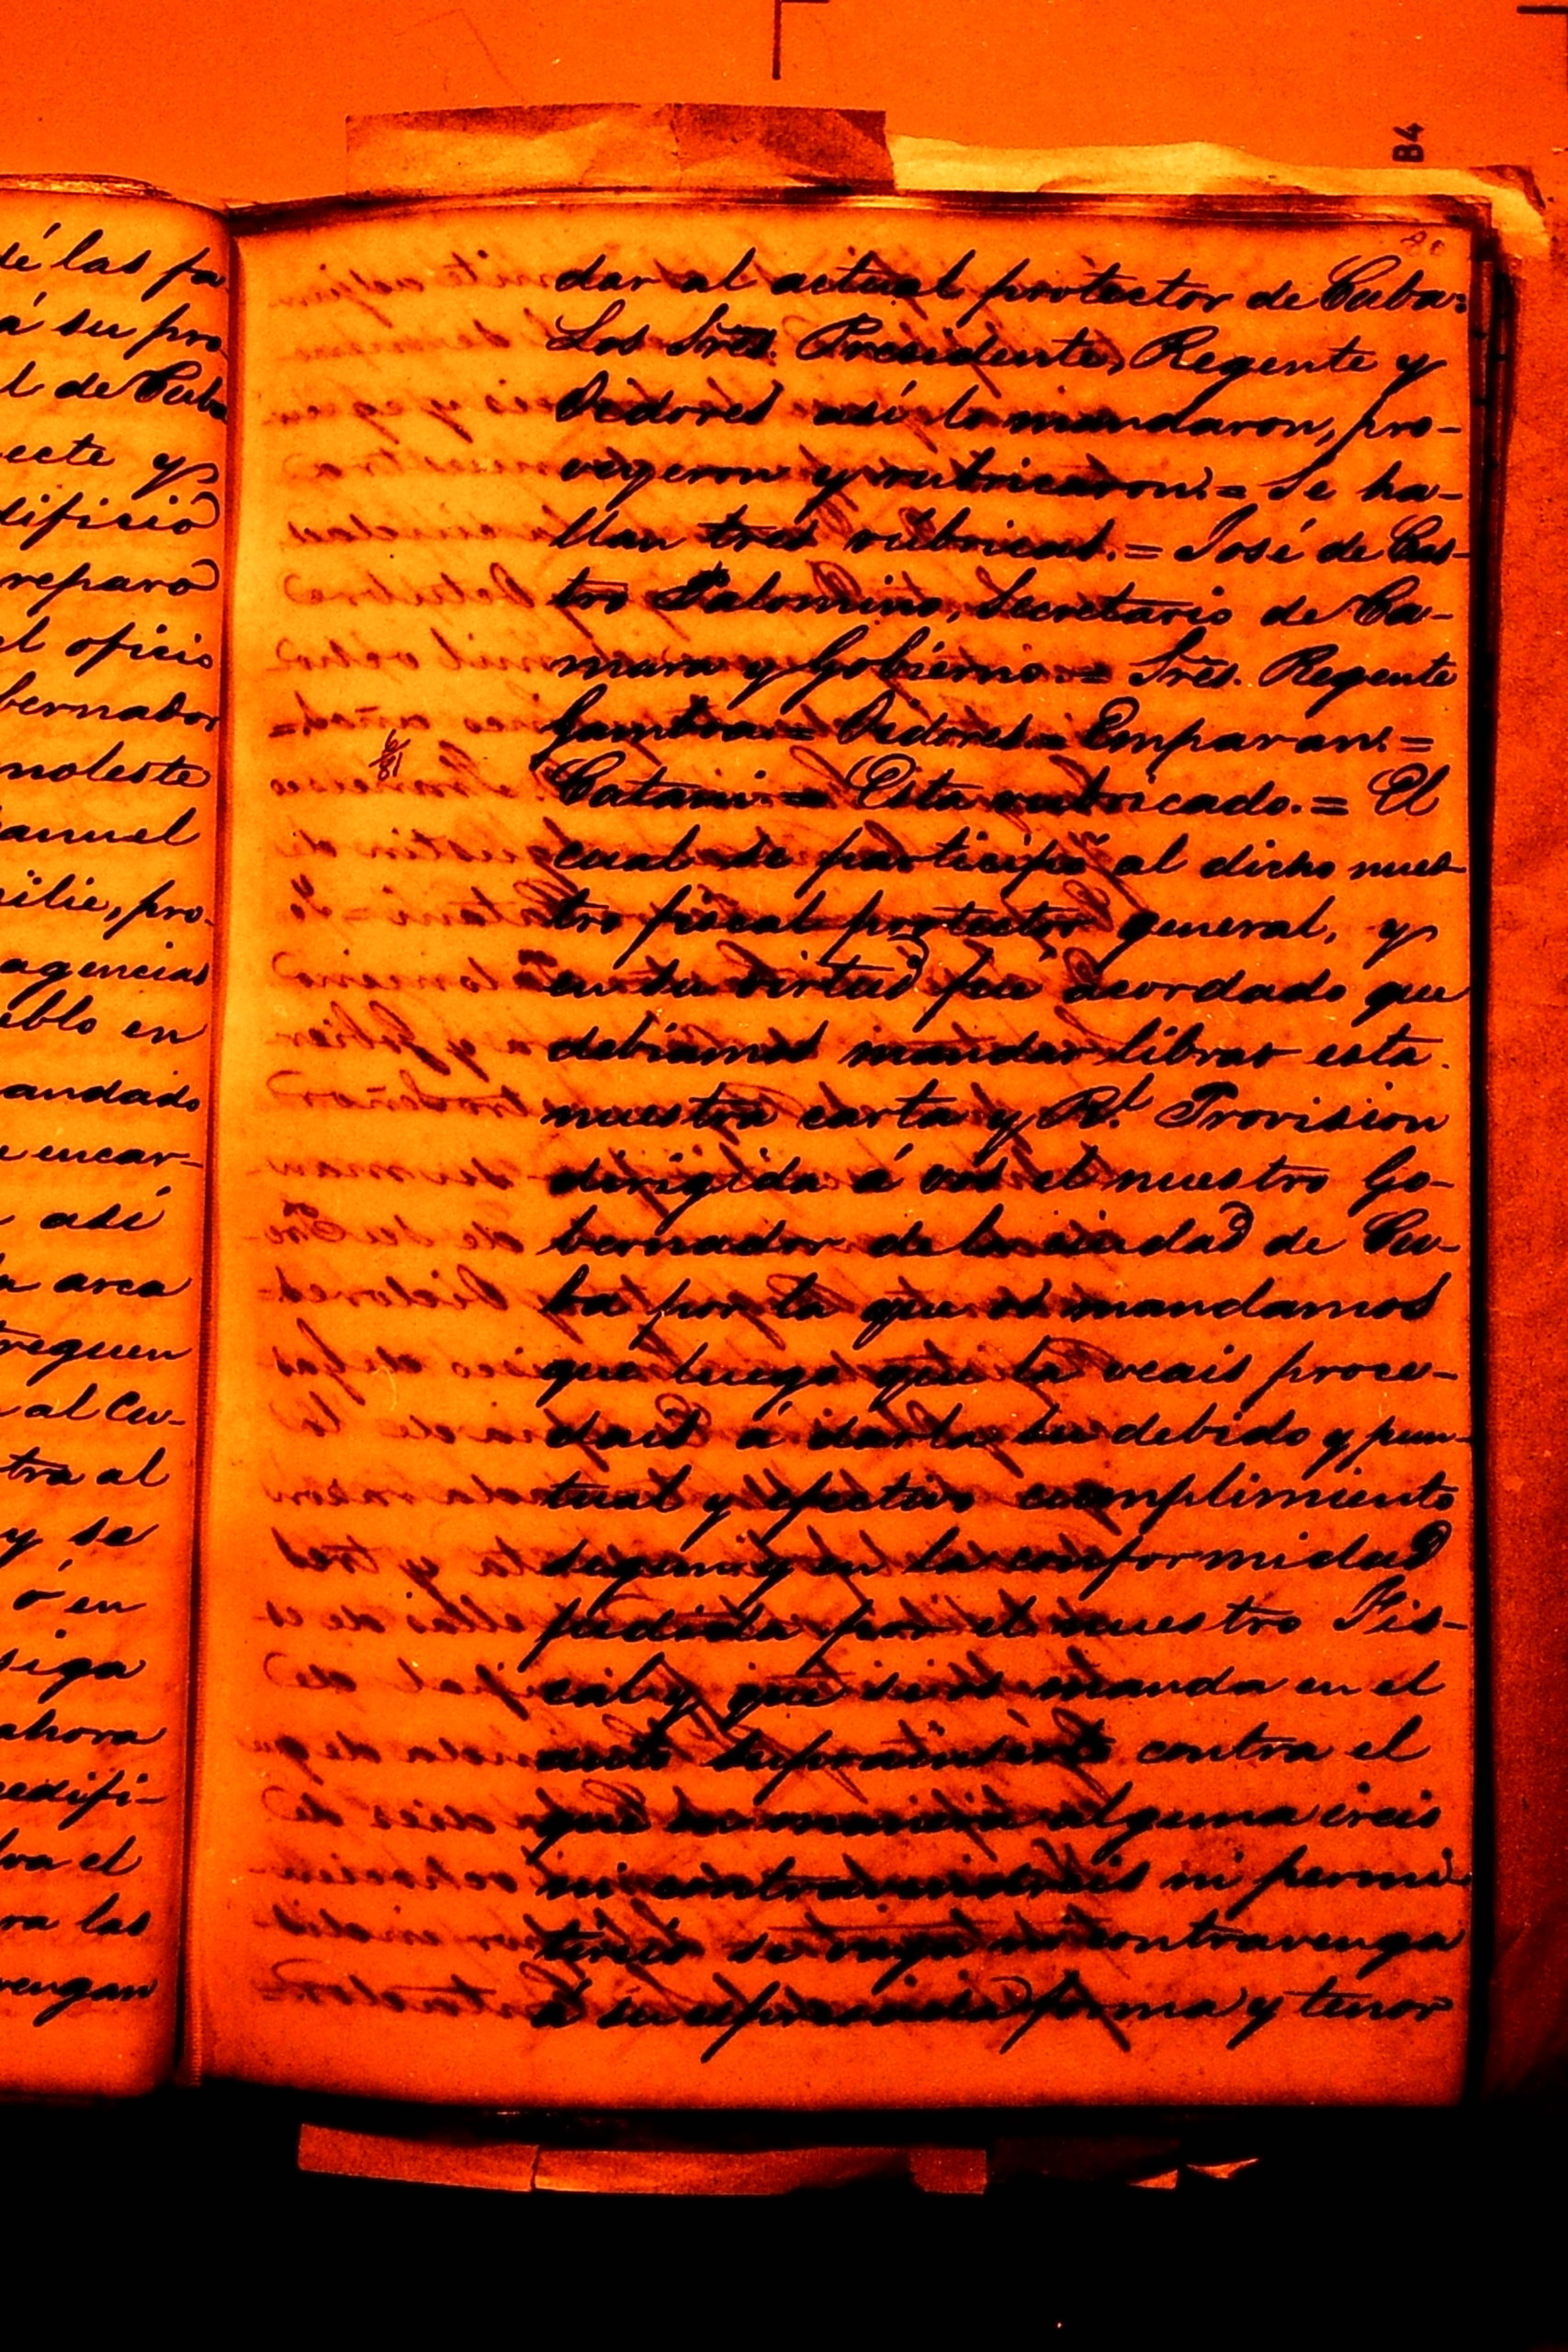 dé las fa
á su pro
l de Cuba
ecte y
dificio
reparo
el oficio
bernador
moleste
anuel
ilie, pro-
agencias
eblo en
andado
e encar-
así
a arca
treguen
al Cu-
tra al
y se
ó en
siga
ahora
edifi-
lva el
ra las
vengan
B4
dar al actual protector de Cuba:
Los Sres. Presidente, Regente y
Oidores así lo mandaron, pro-
veyeron y rubricaron. = Se ha-
llan tres rúbricas. = José de Cas-
tro Palomino, Secretario de Ca-
mara y Gobierno. = Sres. Regente
Gamboa = Oidores = Emparan. =
Catani = Esta rubricado. = El
cual se participó al dicho nues-
tro fiscal protector general, y
en su virtud fué acordado que
debiamos mandar librar esta
nuestra carta y Rl. Provision
dirigida á vos el nuestro Go-
bernador de la ciudad de Cu-
ba por la que os mandamos
que luego que la veais proce-
dais á darla su debido y pun-
tual y efectivo cumplimiento
segun y en la conformidad
pedida por el nuestro Fis-
cal y que se os manda en el
auto supra inserto contra el
que en manera alguna ireis
ni contravendreis ni permi-
tireis se vaya ni contravenga
á su espresada forma y tenor